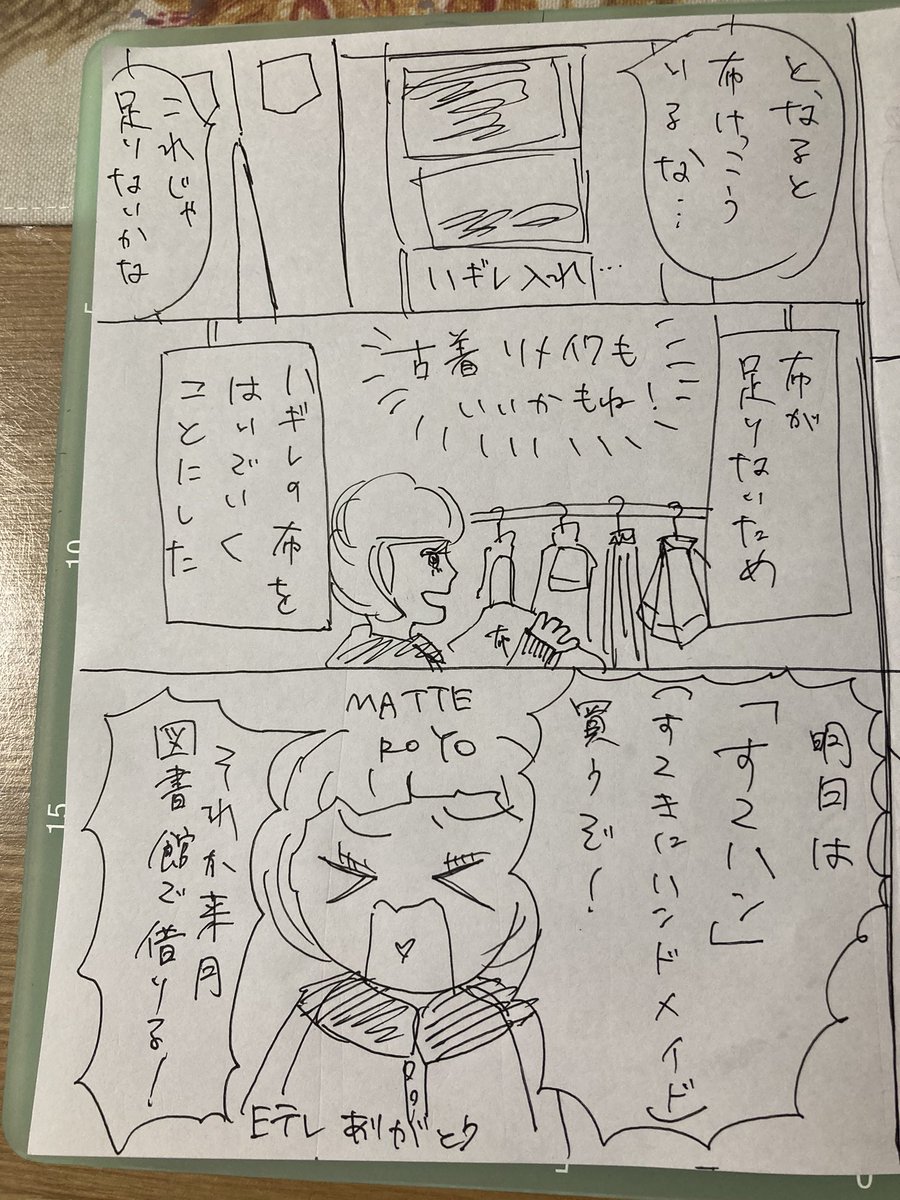 と、なると
布けっこう
いるな…
ハギレ入れ…
これじゃ
足りないかな
布が
足りないため
古着リメイクも
いいかもね!
布
ハギレの布を
はいでいく
ことにした
明日は
「すてハン」
(すてきにハンドメイド)
買うぞ!
MATTE
ROYO
それか来月
図書館で借りる!
Eテレ ありがとう
5
10
15